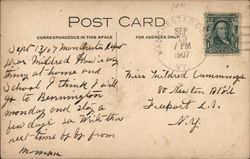 POST CARD
CORRESPONDENCE IN THIS SPACE
SEP
7 PM
1907
VT.
Sept 13/07 Manchester Depot
Dear Mildred How is every
thing at home and
School I think I will
go to Bennington
monday and stay a
few days so With this
next time by by from
Mamma
Miss Mildred Cummings
80 Newton Blvd
Freeport L.I.
N.Y.